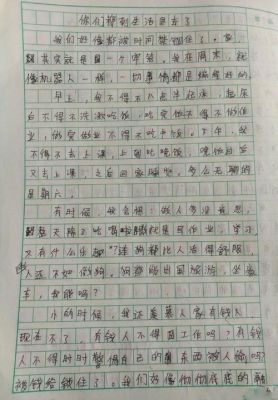 你们都到生活里去了
我们好像都被时间禁锢住了。家，
其实就是一个牢笼。我在周末，就
像机器人一样，一切事情都是编程好的
早上，我不得不八点半起床，起床
后不得不洗漱吃饭，吃完饭不得不做作
业，做完作业不得不吃午饭。下午，我
不得不去上课，上到吃晚饭，晚饭后
又去上课，之后回家睡觉。多么无聊的
星期六。
有时候，我会想：做人多没意思，
每天除了吃喝拉撒就是写作业，学习
又有什么乐趣？连狗都比人活得舒服，
人还不如做狗，狗都能出国旅游，坐
车，我能吗？
小的时候，我还羡慕人家有钱人，
现在不了，有钱人不得回工作吗？有钱
人不得时时警惕自己的东西被人偷吗？
被钱给锁住了。我们好像彻彻底底的